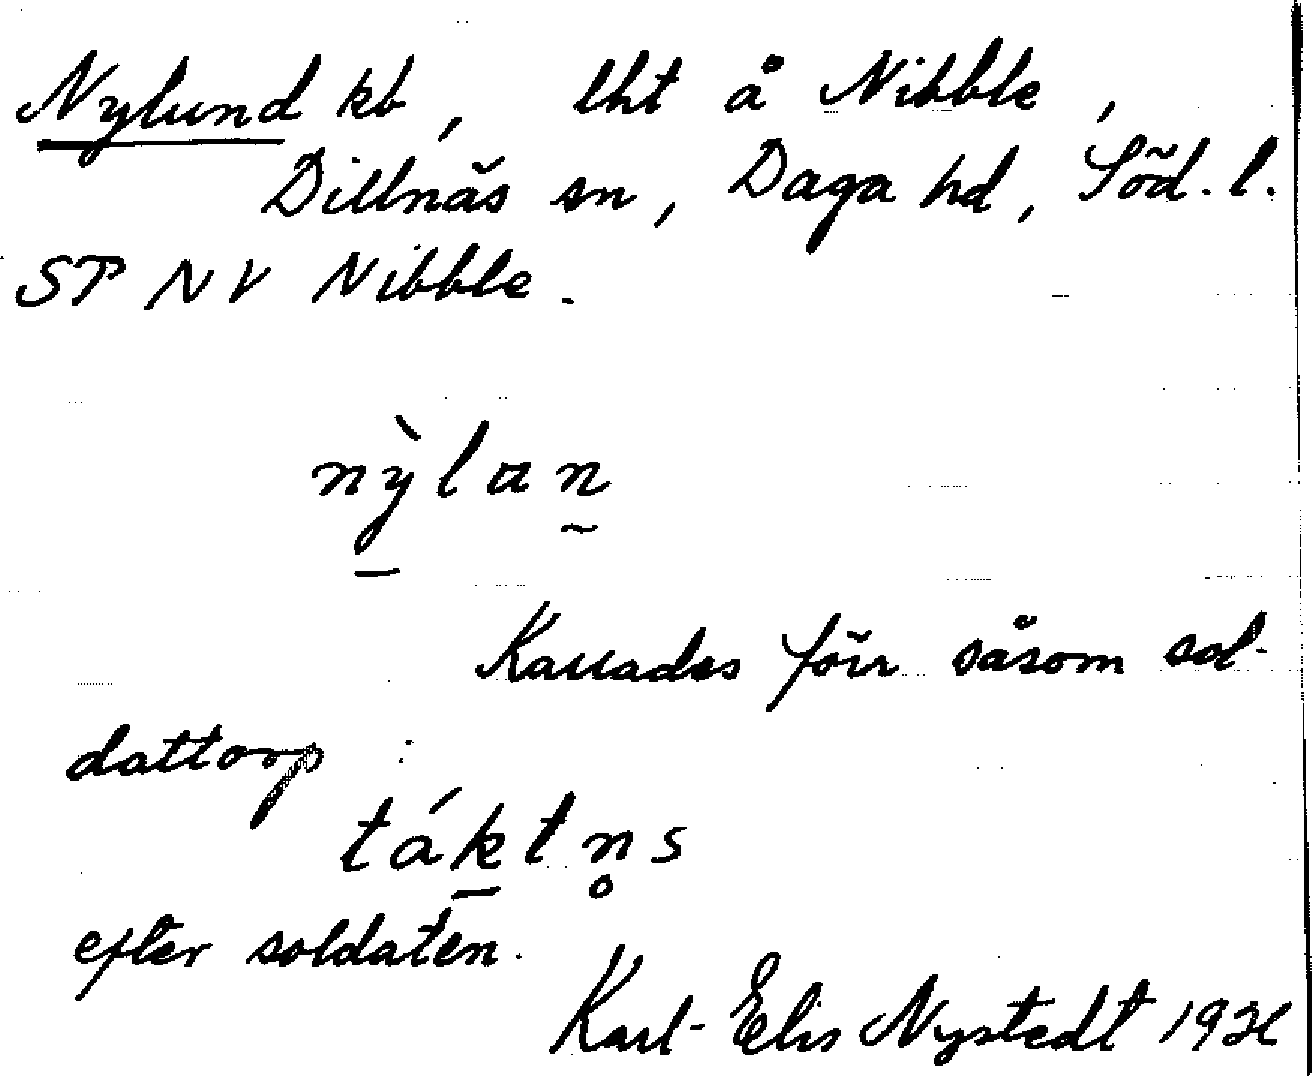 Nylund kb, lht å Nibble,
Dillnäs sn, Daga hd, Söd. l.
ST NV Nibble.
nỳ̱lan̰
Kallades förr såsom sol-
dattorp :
táḵtn̥s
efter soldaten.
Karl-Elis Nystedt